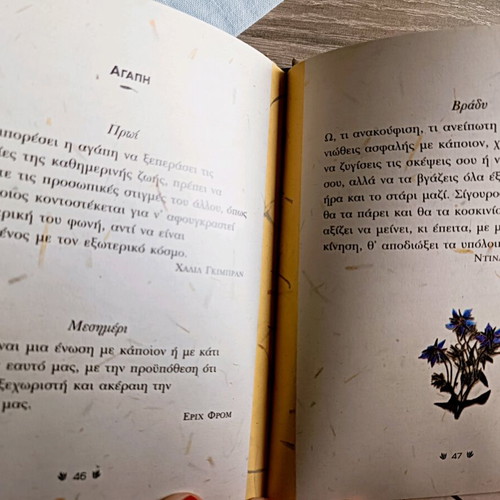 Αγαπη
Πρωί
πορέσει η αγάπη να ξεπεράσει τις
ίες της καθημερινής ζωής, πρέπει να
τε τις προσωπικές στιγμές του άλλου, όπως
οίος κοντοστέκεται για ν' αφουγκραστεί
ερική του φωνή, αντί να είναι
ένος με τον εξωτερικό κόσμο.
Χαλίλ Γκιμπράν
Μεσημέρι
ναι μια ένωση με κάποιον ή με κάτι
εαυτό μας, με την προϋπόθεση ότι
ξεχωριστή και ακέραιη την
μας.
Έριχ Φρομ
46
Βράδυ
Ω, τι ανακούφιση, τι ανείπωτη
νιώθεις ασφαλής με κάποιον, χ
να ζυγίσεις τις σκέψεις σου ή ν
σου, αλλά να τα βγάζεις όλα έξ
ήρα και το στάρι μαζί. Σίγουρο
θα τα πάρει και θα τα κοσκινίσ
αξίζει να μείνει, κι έπειτα, με μ
κίνηση, θ' αποδιώξει τα υπόλοι
Ντινα
47